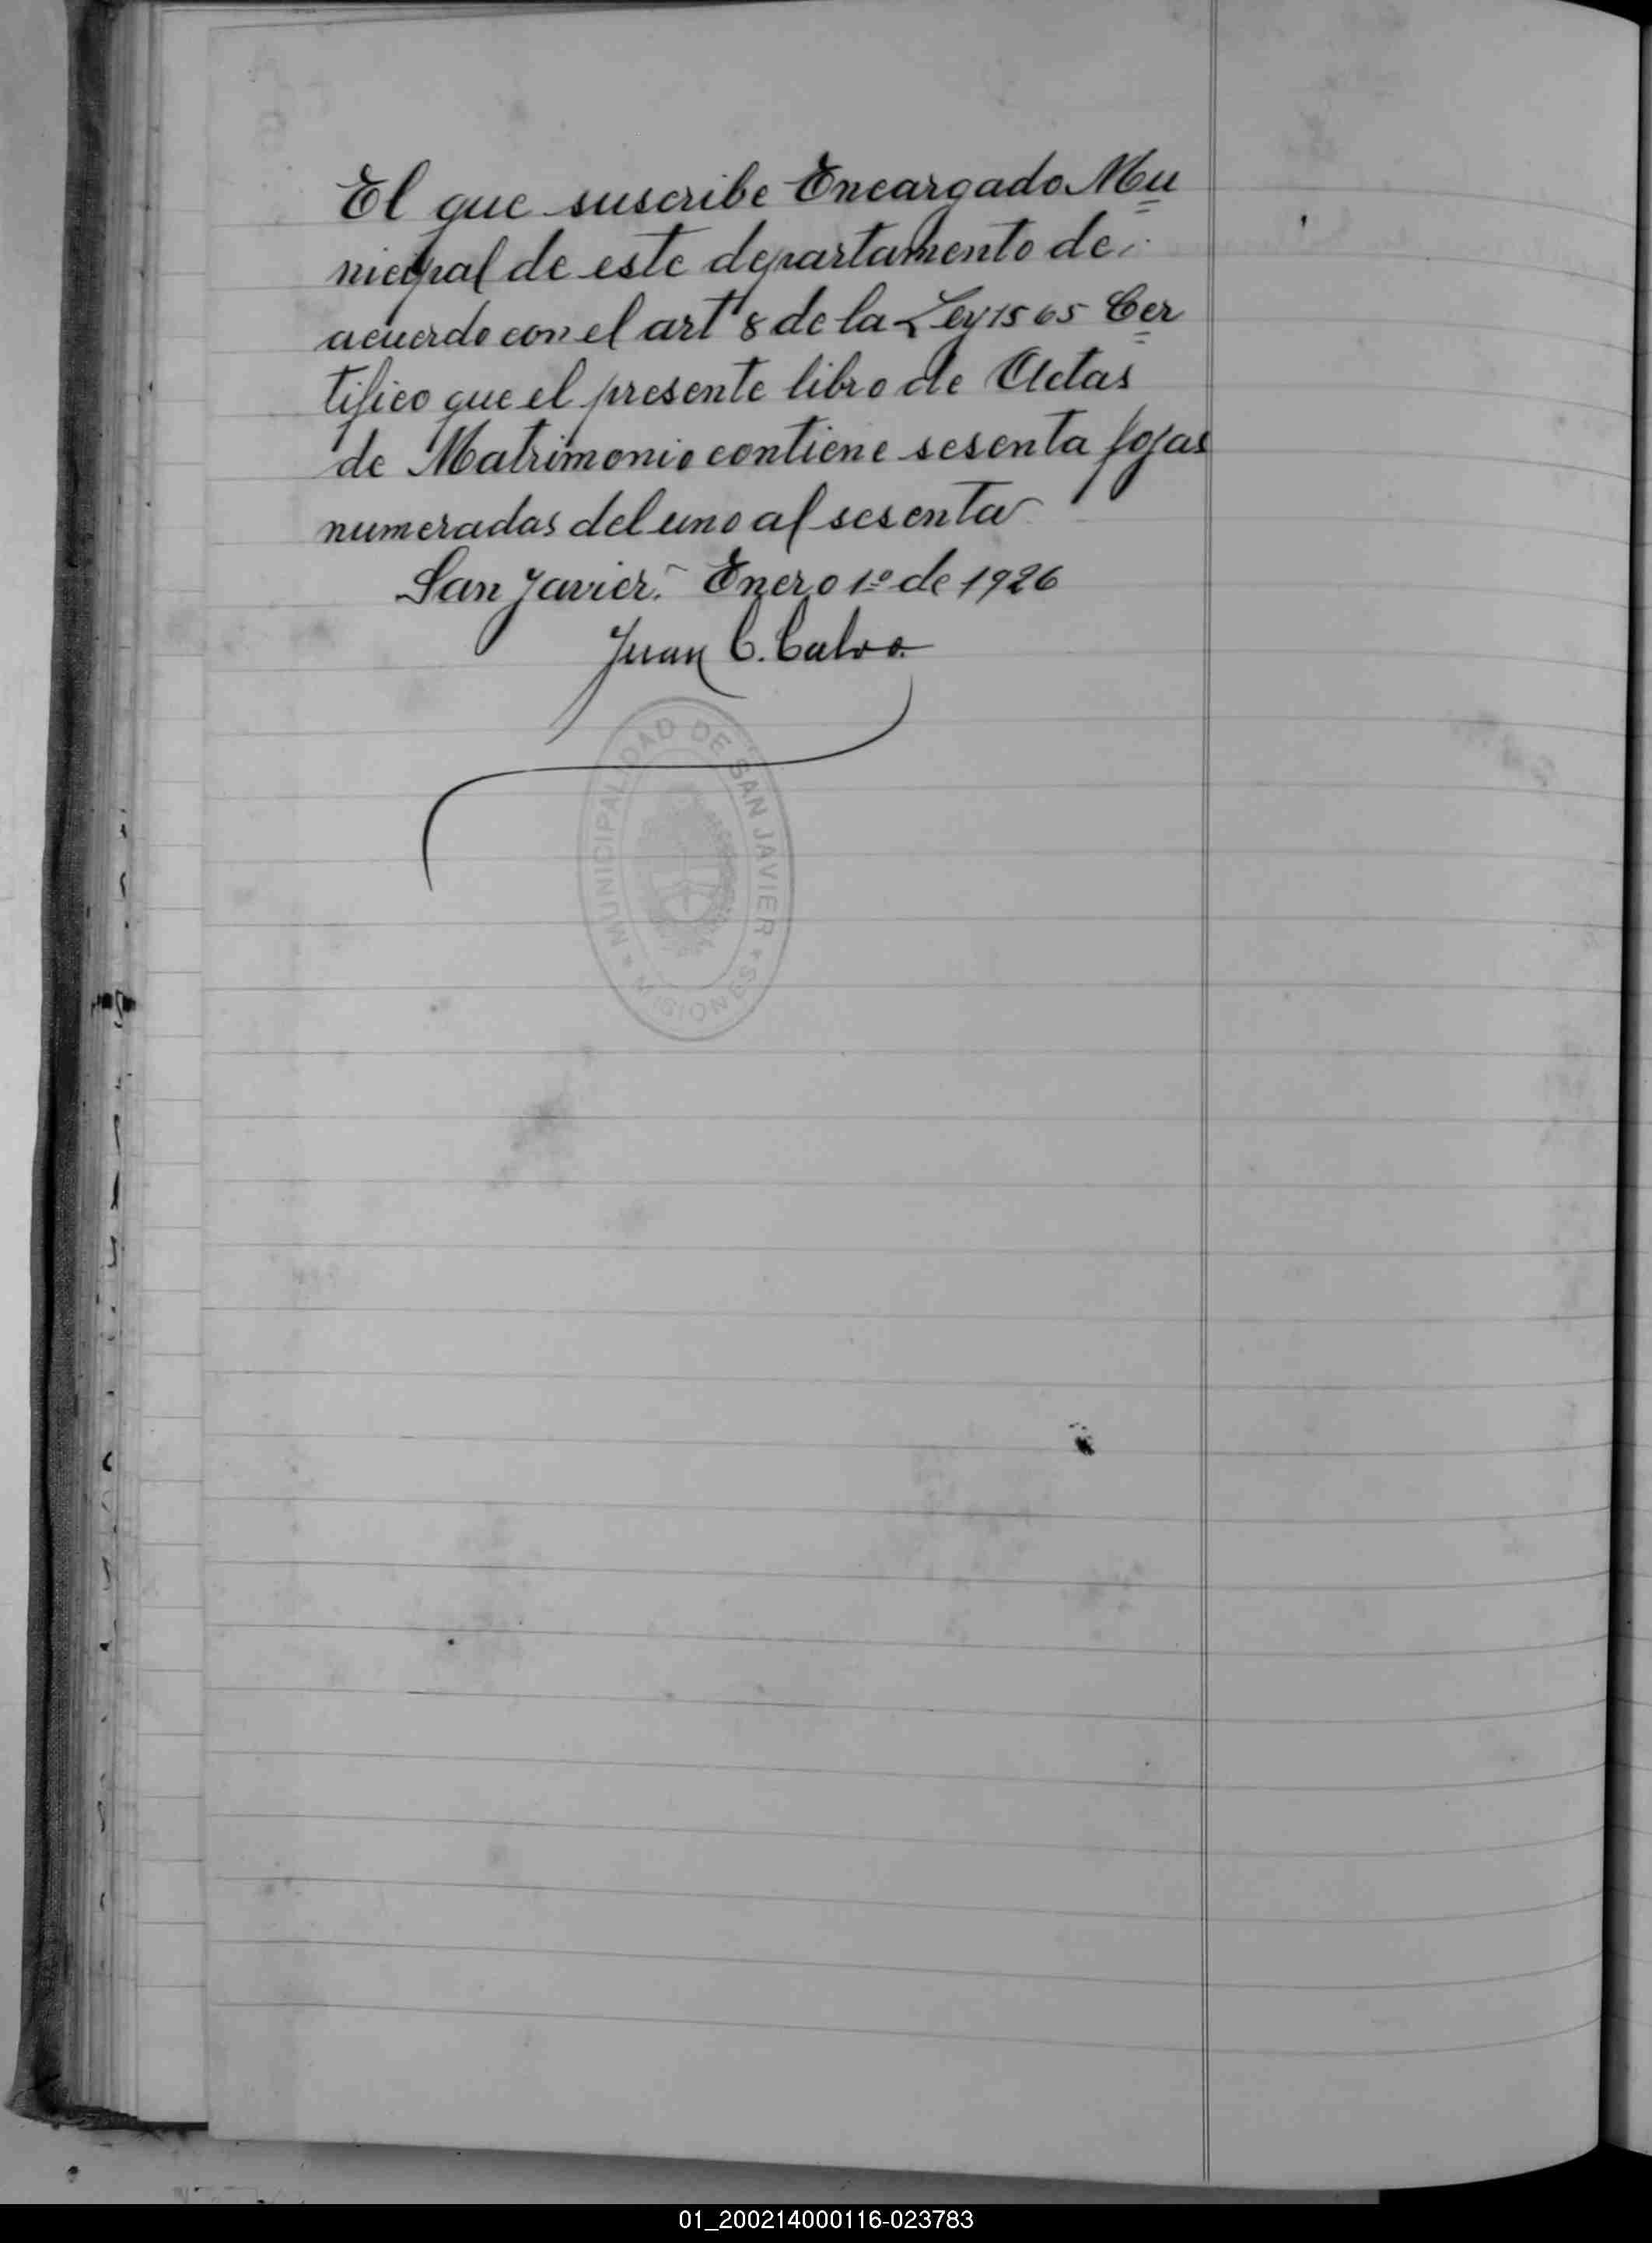 El que suscribe Encargado Mu=
nicipal de este departamento de
acuerdo con el artº 8 de la Ley 1565 Cer=
tifico que el presente libro de Actas
de Matrimonio contiene sesenta fojas
numeradas del uno al sesenta
San Javier. Enero 1º de 1926
Juan C. Calvo
MUNICIPALIDAD DE SAN JAVIER
* MISIONES *
01_200214000116-023783